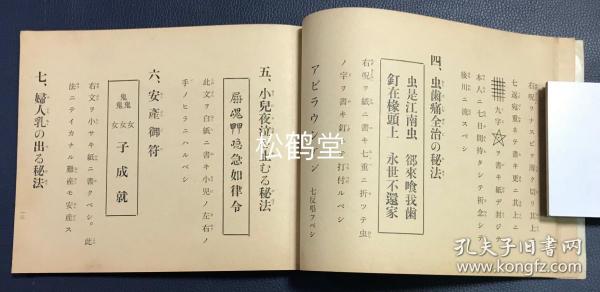 右呪ヲ
七遍宛重ネテ書キ其上ニ
九字ヲ書キ紙デ封ジテ
本人ニ七日間持タシテ祈念シテ
後川ニ流スベシ
四、虫歯痛全治の秘法
虫是江南虫 郤來喰我歯
釘在椽頭上 永世不還家
右呪シヲ紙ニ書キ七重ニ折ツテ虫
ノ字ヲ書キ釘ニテ打付ルベシ
アビラウンケン 七反唱フベシ
五、小兒夜泣き止むる秘法
急如律令
此文ヲ白紙ニ書キ小児ノ左右ノ
手ノヒラニハルベシ
六、安產御符
鬼鬼鬼 女女女 子成就
右文ヲ小サキ紙ニ書クベシ。此
法ニテイカナル難産モ安産ス
七、婦人乳の出る秘法
松鹤堂
孔夫子旧书网
www.kongfz.com